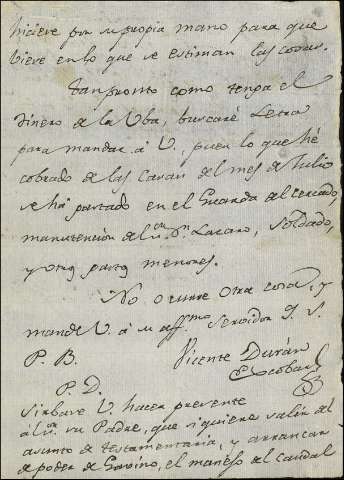 hiciere por su propia mano para que
viere en lo que se estiman las cosas.
Tan pronto como tenga el
dinero de la Uba, buscaré Letra
para mandar á V. pues lo que hé
cobrado de las Casas del mes de Julio
se há gastado en el Guarda del cercado,
manutencion del Sr. Dn. Lazaro, Soldado,
y otros gastos menores.
No ocurre otra cosa, y
mande V. á su affmo. Servidor Q. S.
P. B.
Vicente Durán
Escobar
P. D.
Sirbase V. hacer presente
á su Padre, que si quiere salir del
asunto de testamentaría, y arrancar
de poder de Gavino, el manejo del caudal